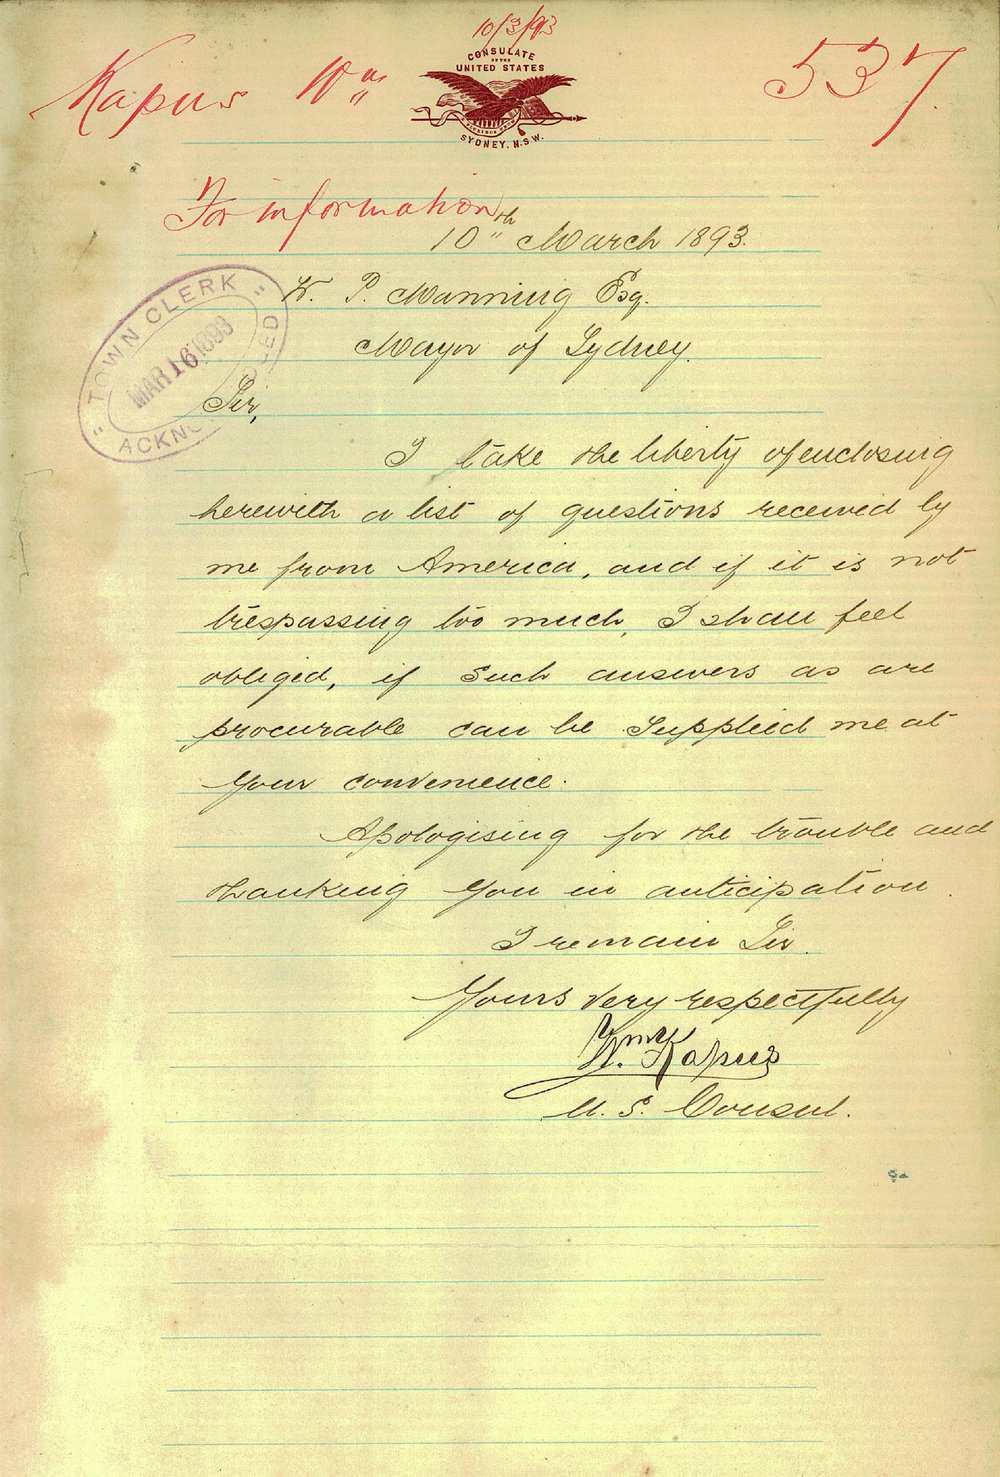 10/3/93
Kapus Wm 537
CONSULATE
OF THE
UNITED STATES
SYDNEY, N.S.W.
For information
10th March 1893.
W. P. Manning Esq.
Mayor of Sydney.
"TOWN CLERK"
MAR 16 1893
ACKNOWLEDGED
Sir,
I take the liberty of enclosing
herewith a list of questions received by
me from America, and if it is not
trespassing too much, I shall feel
obliged, if such answers as are
procurable can be supplied me at
your convenience.
Apologising for the trouble and
thanking you in anticipation.
I remain Sir.
Yours very respectfully
Wm Kapus
U. S. Consul.